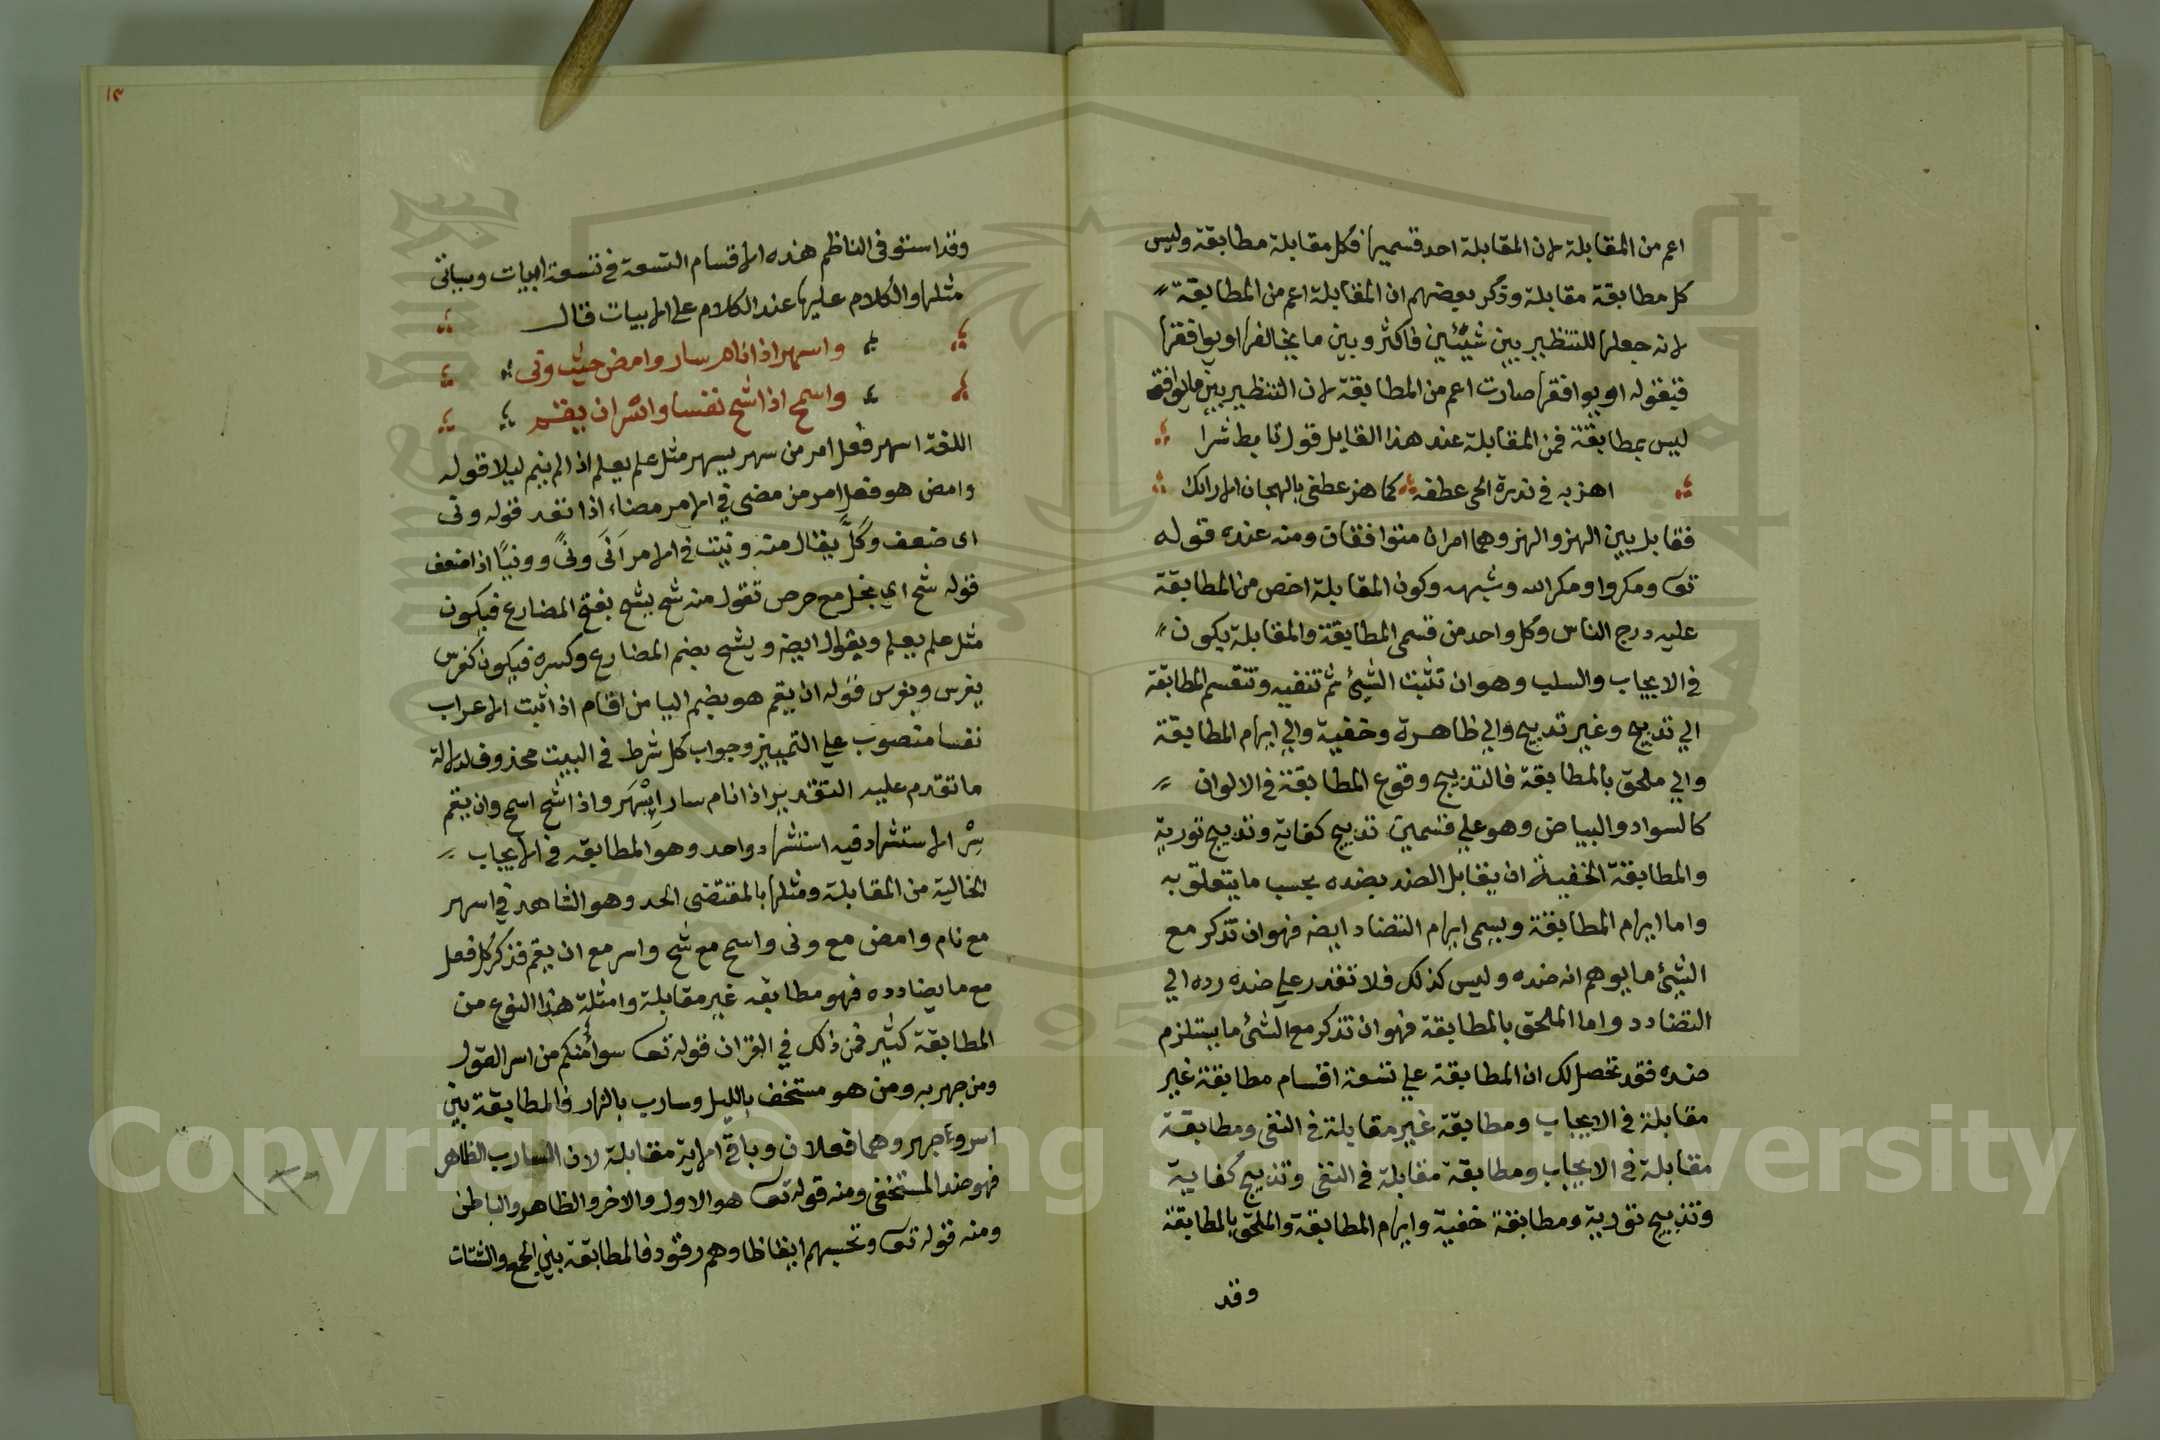 اعم من المقابلة لان المقابلة احد قسميها فكل مقابلة مطابقة وليس
كل مطابقة مقابلة وذكر بعضهم ان المقابلة اعم من المطابقة
لانه جعلها للتنظير بين شيئين فاكثر وبين ما يخالفها او يوافقها
فبقوله او يوافقها صارت اعم من المطابقة لان التنظير بين ما يوافق
ليس بمطابقة فمن المقابلة عند هذا القايل قول تابط شرا
اهز به في ندرة الحي عطفه كما هز عطفي بالهجان الاراك
فقابل بين الهز والهز وهما امران متوافقان ومنه عنده قوله
تعـ ومكروا ومكر الله وشبهه وكون المقابلة اخص من المطابقة
عليه درج الناس وكل واحد من قسمي المطابقة والمقابلة يكون
في الايجاب والسلب وهو ان تثبت الشئ ثم تنفيه وتنقسم المطابقة
الي تدبيج وغير تدبيج والي ظاهرة وخفية والي ايهام المطابقة
والي ملحق بالمطابقة فالتدبيج وقوع المطابقة في الالوان
كالسواد والبياض وهو علي قسمين تدبيج كفاية وتدبيج تورية
والمطابقة الخفية ان يقابل الضد بضده بحسب ما يتعلق به
واما ايهام المطابقة ويسمى ايهام التضاد ايضه فهو ان تذكر مع
الشئ ما يوهم انه ضده وليس كذلك فلا تقدر علي ضده رده الي
التضادد واما الملحق بالمطابقة فهو ان تذكر مع الشئ ما يستلزم
ضده فقد تحصل لك ان المطابقة علي تسعة اقسام مطابقة غير
مقابلة في الايجاب ومطابقة غير مقابلة في النفى ومطابقة
مقابلة في الايجاب ومطابقة مقابلة في النفى وتدبيج كفاية
وتدبيج تورية ومطابقة خفية وايهام المطابقة والملحق بالمطابقة
وقد
١٣
وقد استوفى الناظم هذه الاقسام التسعة في تسعة ابيات وسياتى
مثلها والكلام عليها عند الكلام على الابيات قال
واسهر اذا نام سار وامض حيث وني
واسمح اذا شح نفسا واسر ان يقم
اللغة اسهر فعل امر من سهر يسهر مثل علم يعلم اذا لم ينم ليلا قوله
وامض هو فعل امر من مضى في الامر مضاء اذا نفد قوله ونى
اى ضعف وكلّ يقال منه ونيت في الامر اَنَى ونىً وونيًا اذا ضعف
قوله شح اي بخل مع حرص تقول منه شح يشح بفتح المضارع فيكون
مثل علم يعلم ويقال ايضه ويشح بضم المضارع وكسره فيكون كغرس
يغرس ويغرس قوله ان يقم هو بضم اليا من اقام اذا ثبت الاعراب
نفسا منصوب علي التمييز وجواب كل شرط في البيت محذوف لدلالة
ما تقدم عليه التقدير اذا نام سار اِسْهَر واذا شح اسمح وان يقم
سِرْ الاستشهاد فيه استشهاد واحد وهو المطابقة في الايجاب
الخالية من المقابلة ومثلها بالمقتضى الحد وهو الشاهد في اسهر
مع نام وامض مع ونى واسمح مع شح واسر مع ان يقم فذكر كل فعل
مع ما يضادده فهو مطابقة غير مقابلة وامثلة هذا النوع من
المطابقة كثير فمن ذلك في القران قوله تعـ سوآء منكم من اسر القول
ومن جهر به ومن هو مستخف بالليل وسارب بالنهار فالمطابقة بين
اسر وجهر وهما فعلان وباقي الاية مقابلة لان السارب الظاهر
فهو ضد المستخفى ومنه قوله تعـ هو الاول والاخر والظاهر والباطن
ومنه قوله تعـ وتحسبهم ايقاظا وهم رقود فالمطابقة بين الجمع والشتات
Copyright © King Saud University